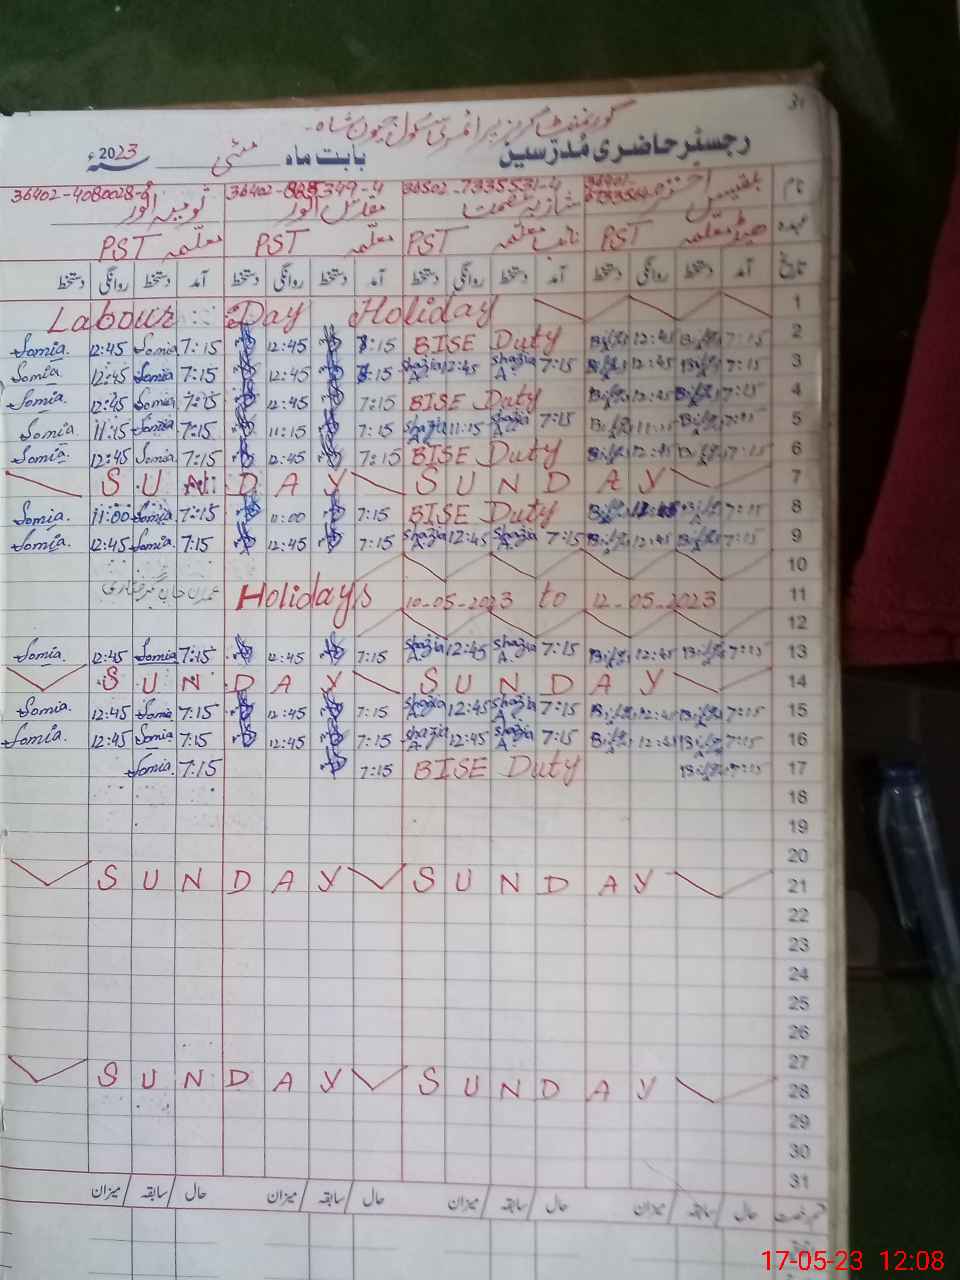 31
گورنمنٹ گرلز پرائمری سکول جیون شاہ۔
رجسٹر حاضری مدرسین بابت ماہ مئی سنہ 2023ء
نام بلقیس اختر 36402- شازیہ 36302-7335531-4 مقدس انور 36402- 349-4 36402-4080028-8
عہدہ ہیڈ معلمہ PST نائب معلمہ PST معلمہ PST معلمہ PST
تاریخ آمد دستخط روانگی دستخط آمد دستخط روانگی دستخط آمد دستخط روانگی دستخط آمد دستخط روانگی دستخط
Labour Day Holiday 1
Somia. 12:45 Somia 7:15 12:45 7:15 BISE Duty 12:45 7:15 2
Somia. 12:45 Somia 7:15 12:45 7:15 Shazia A 12:45 Shazia A 7:15 12:45 7:15 3
Somia. 12:45 Somia 7:15 12:45 7:15 BISE Duty 12:45 7:15 4
Somia. 11:15 Somia 7:15 11:15 7:15 Shazia A 11:15 Shazia A 7:15 11:15 7:15 5
Somia. 12:45 Somia 7:15 12:45 7:15 BISE Duty 12:45 7:15 6
S U D A Y S U N D A Y 7
Somia. 11:00 Somia 7:15 11:00 7:15 BISE Duty 7:15 8
Somia. 12:45 Somia 7:15 12:45 7:15 Shazia A 12:45 Shazia A 7:15 12:45 7:15 9
10
Holidays 10-05-2023 to 12-05-2023 11
12
Somia. 12:45 Somia 7:15 12:45 7:15 Shazia A 12:45 Shazia A 7:15 12:45 7:15 13
S U N D A Y S U N D A Y 14
Somia. 12:45 Somia 7:15 12:45 7:15 Shazia A 12:45 Shazia A 7:15 12:45 7:15 15
Somia. 12:45 Somia 7:15 12:45 7:15 Shazia A 12:45 Shazia A 7:15 12:45 7:15 16
Somia. 7:15 7:15 BISE Duty 7:15 17
18
19
20
S U N D A Y S U N D A Y 21
22
23
24
25
26
27
S U N D A Y S U N D A Y 28
29
30
31
حال سابقہ میزان حال سابقہ میزان حال سابقہ میزان حال سابقہ میزان
17-05-23 12:08